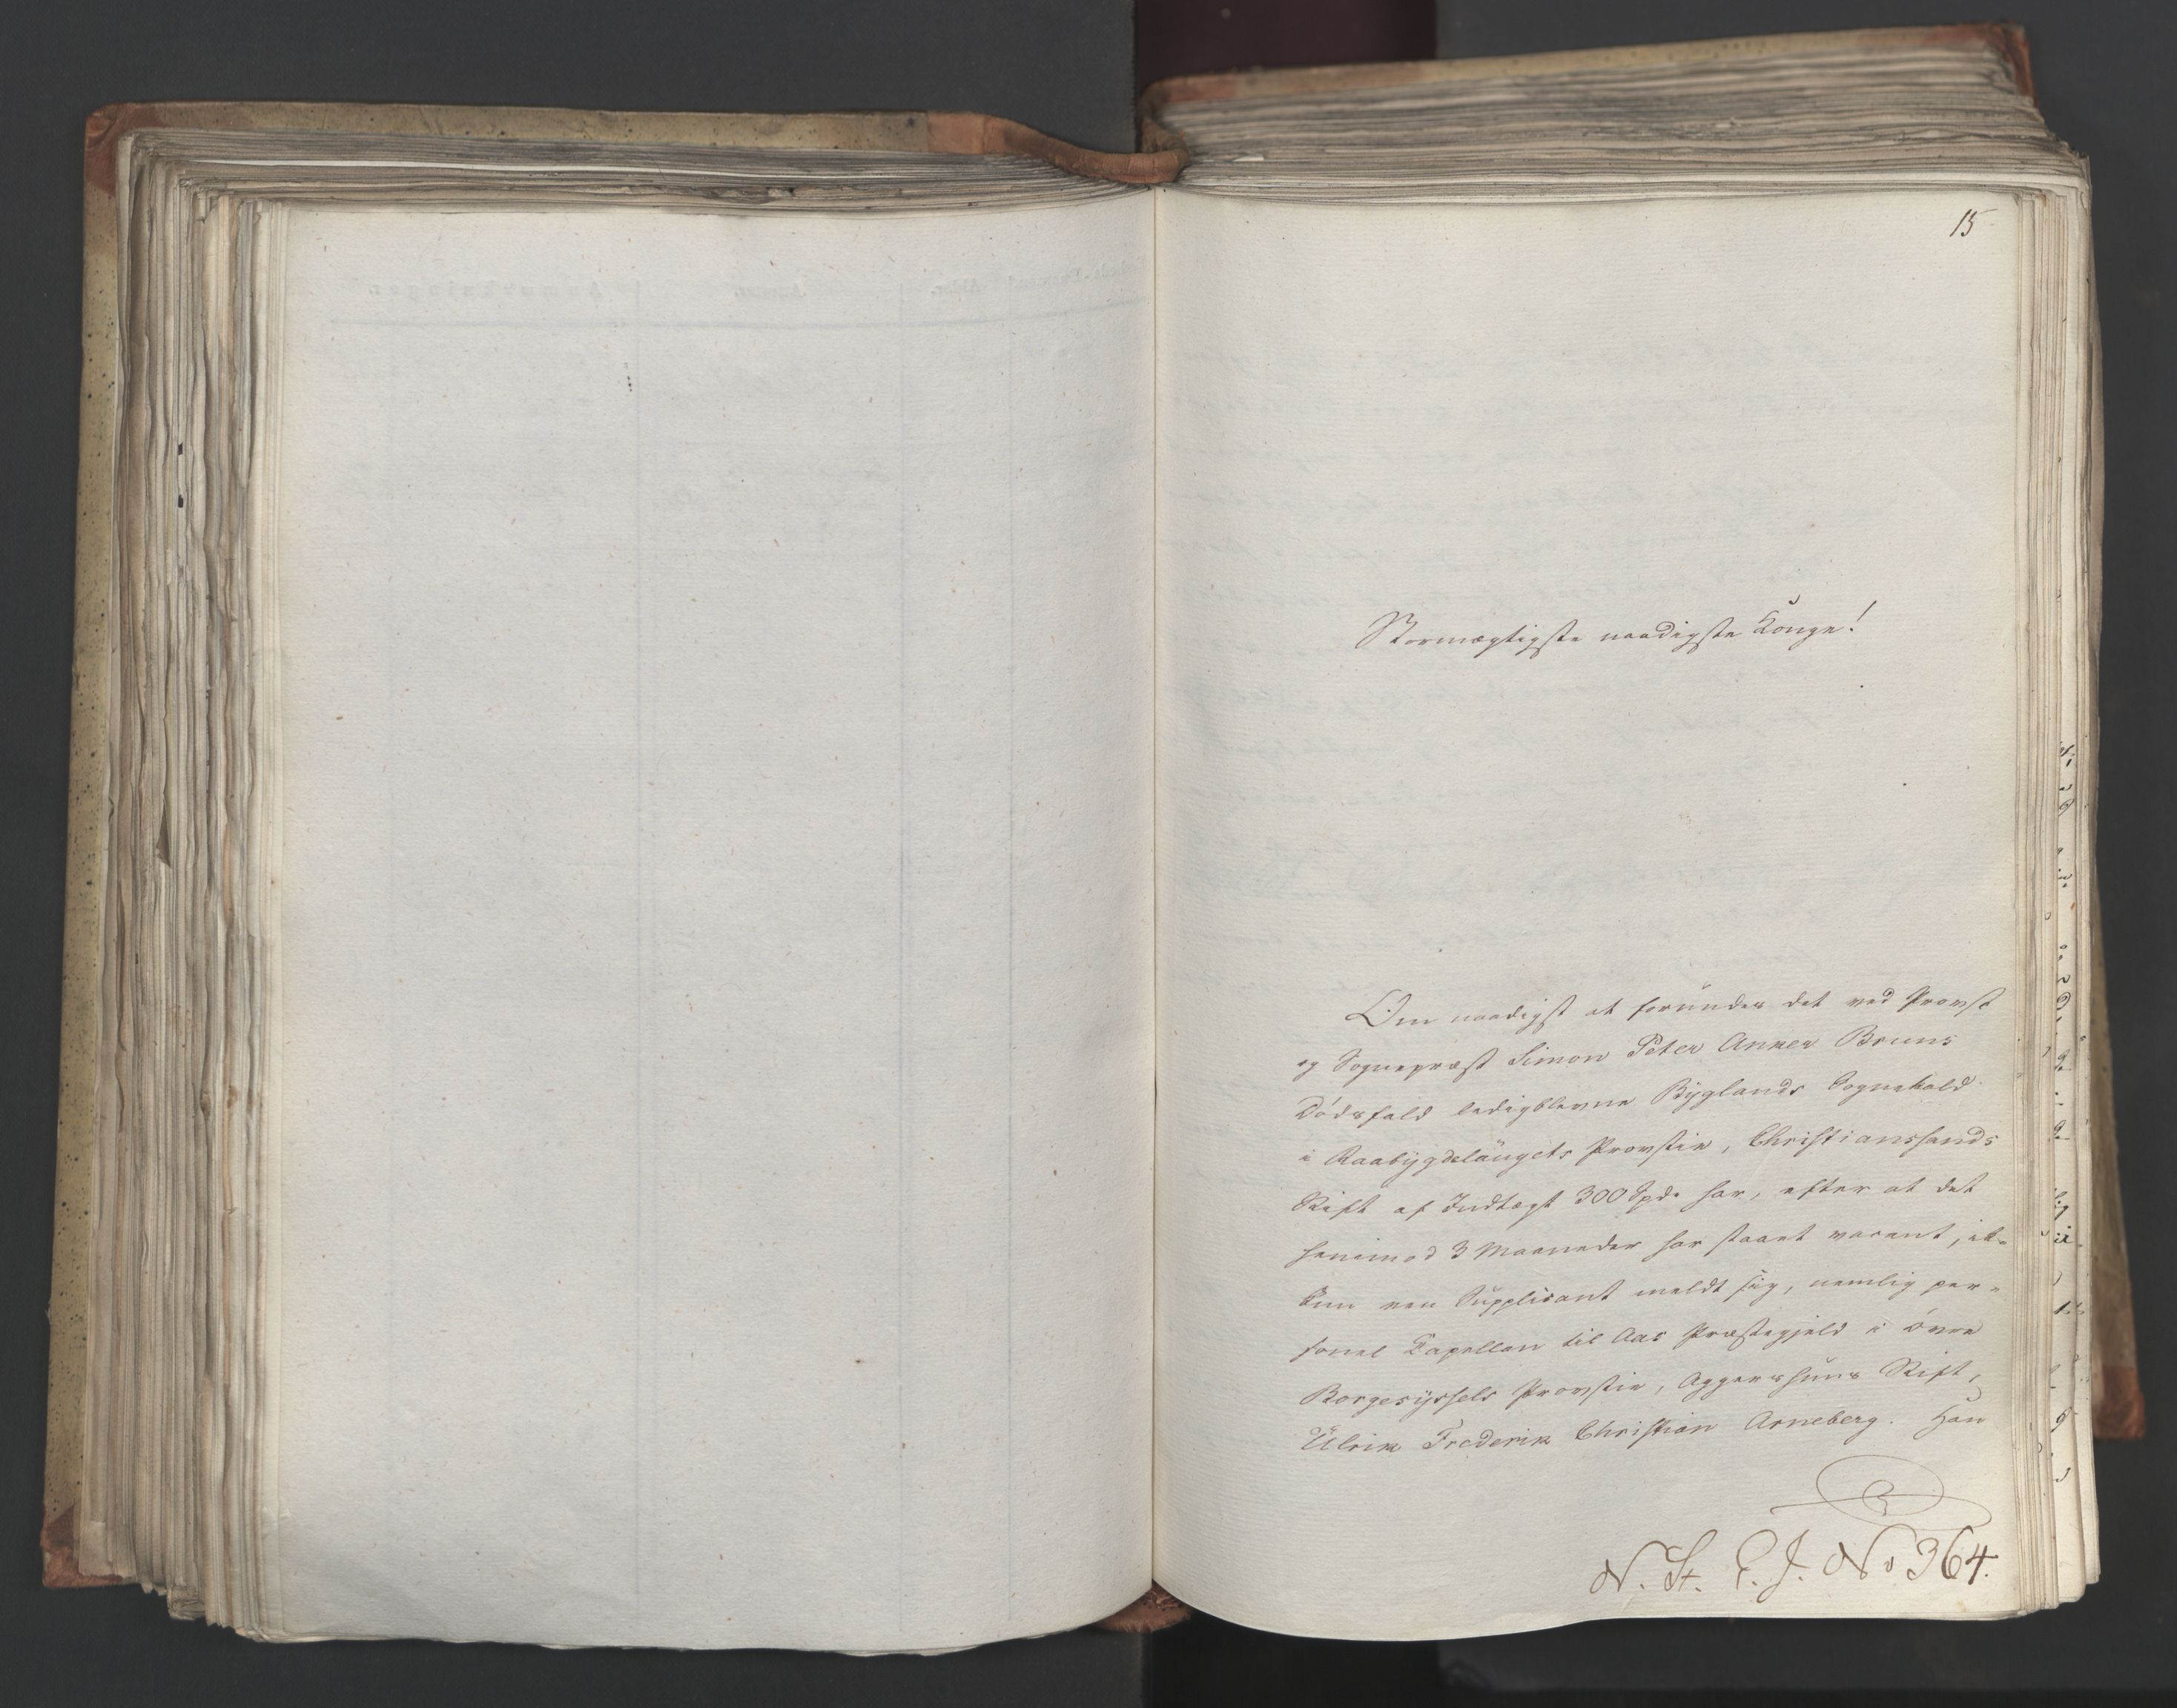 15
Stormægtigste naadigste Konge!
Om naadigst at forundes det ved Provst
og Sognepræst Simon Peter Anker Bruns
Dödsfald ledigblevne Byglands Sognekald
i Raabygdelaugets Provstie, Christianssands
Stift af Indtægt 300 Spd. har, efter at det
henimod 3 Maaneder har staaet vacant, ik-
kun een Supplicant meldt sig, nemlig per-
sonel Capellan til Aas Præstegjeld i övre
Borgesyssels Provstie, Aggershuus Stift,
Ulrik Frederik Christian Arneberg. Han
N. St. E. J. No 364.